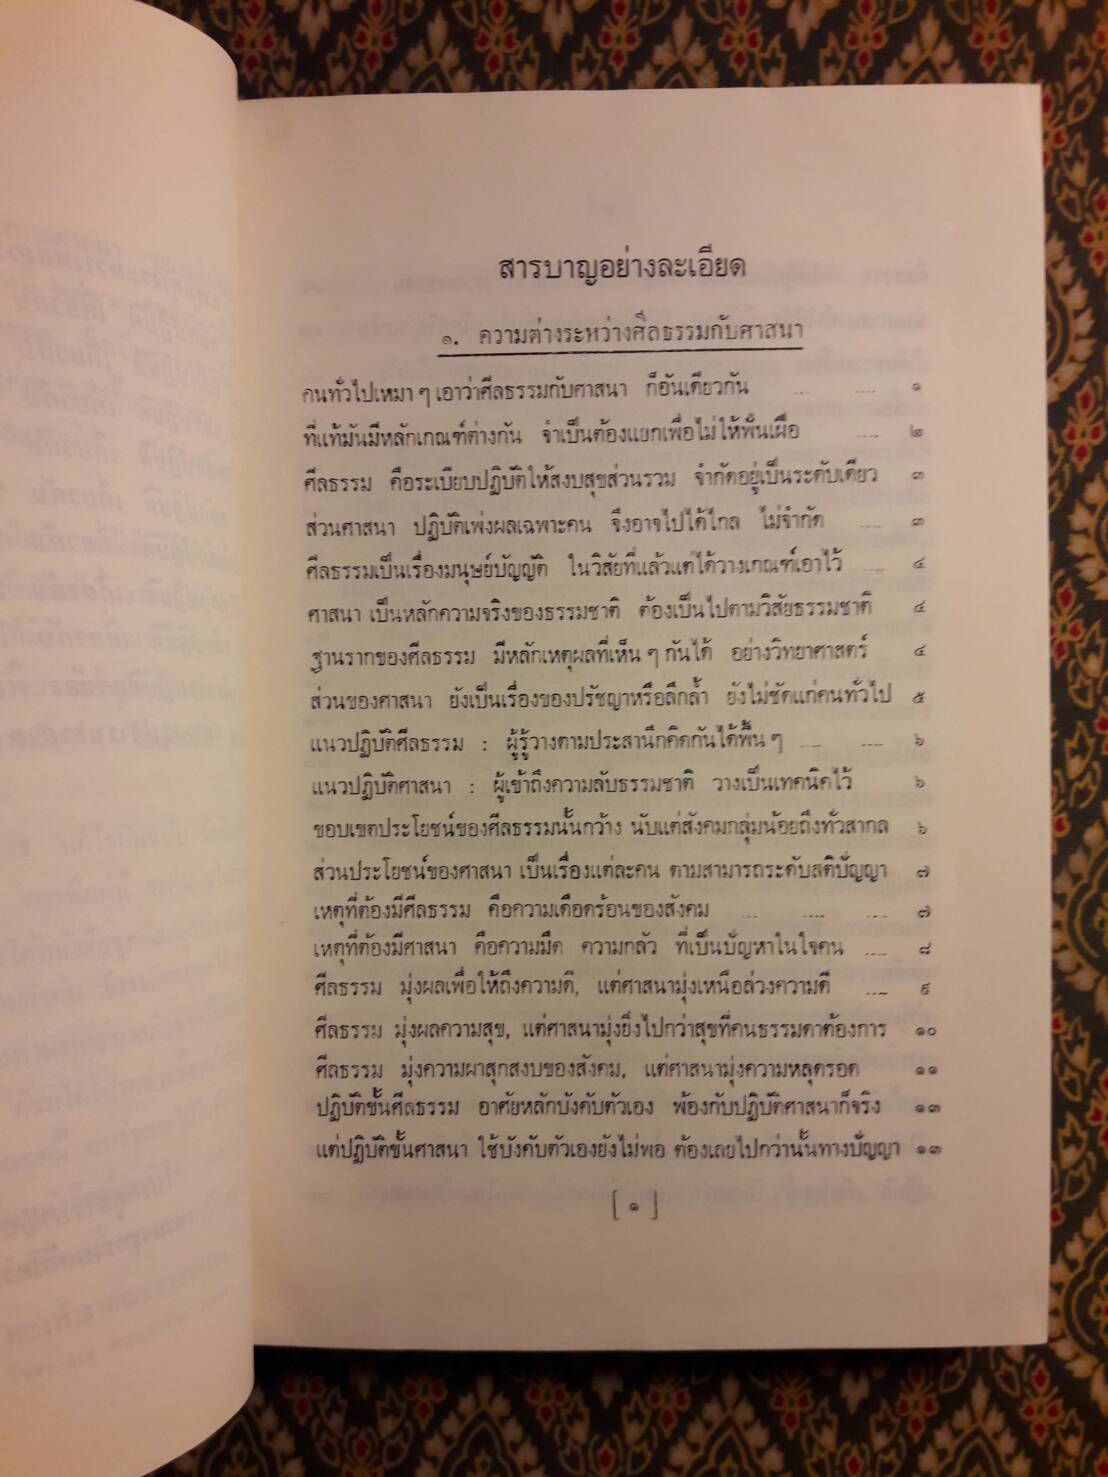 สารบาญอย่างละเอียด
๑. ความต่างระหว่างศีลธรรมกับศาสนา
คนทั่วไปเหมา ๆ เอาว่าศีลธรรมกับศาสนา ก็อันเดียวกัน .... .... ๑
ที่แท้มันมีหลักเกณฑ์ต่างกัน จำเป็นต้องแยกเพื่อไม่ให้ฟั่นเฝือ .... ๒
ศีลธรรม คือระเบียบปฏิบัติให้สงบสุขส่วนรวม จำกัดอยู่เป็นระดับเดียว ๓
ส่วนศาสนา ปฏิบัติเพ่งผลเฉพาะคน จึงอาจไปได้ไกล ไม่จำกัด .... ๓
ศีลธรรมเป็นเรื่องมนุษย์บัญญัติ ในวิสัยที่แล้วแต่ได้วางเกณฑ์เอาไว้ .... ๔
ศาสนา เป็นหลักความจริงของธรรมชาติ ต้องเป็นไปตามวิสัยธรรมชาติ ๔
ฐานรากของศีลธรรม มีหลักเหตุผลที่เห็น ๆ กันได้ อย่างวิทยาศาสตร์ ๔
ส่วนของศาสนา ยังเป็นเรื่องของปรัชญาหรือลึกล้ำ ยังไม่ชัดแก่คนทั่วไป ๕
แนวปฏิบัติศีลธรรม : ผู้รู้วางตามประสานึกคิดกันได้พื้น ๆ .... .... ๖
แนวปฏิบัติศาสนา : ผู้เข้าถึงความลับธรรมชาติ วางเป็นเทคนิคไว้ ๖
ขอบเขตประโยชน์ของศีลธรรมนั้นกว้าง นับแต่สังคมกลุ่มน้อยถึงทั่วสากล ๖
ส่วนประโยชน์ของศาสนา เป็นเรื่องแต่ละคน ตามสามารถระดับสติปัญญา ๗
เหตุที่ต้องมีศีลธรรม คือความเดือดร้อนของสังคม .... .... .... ๗
เหตุที่ต้องมีศาสนา คือความมืด ความกลัว ที่เป็นปัญหาในใจคน .... ๘
ศีลธรรม มุ่งผลเพื่อให้ถึงความดี, แต่ศาสนามุ่งเหนือล่วงความดี .... ๙
ศีลธรรม มุ่งผลความสุข, แต่ศาสนามุ่งยิ่งไปกว่าสุขที่คนธรรมดาต้องการ ๑๐
ศีลธรรม มุ่งความผาสุกสงบของสังคม, แต่ศาสนามุ่งความหลุดรอด ๑๑
ปฏิบัติชั้นศีลธรรม อาศัยหลักบังคับตัวเอง พ้องกับปฏิบัติศาสนาก็จริง ๑๓
แต่ปฏิบัติชั้นศาสนา ใช้บังคับตัวเองยังไม่พอ ต้องเลยไปกว่านั้นทางปัญญา ๑๓
[ ๑ ]